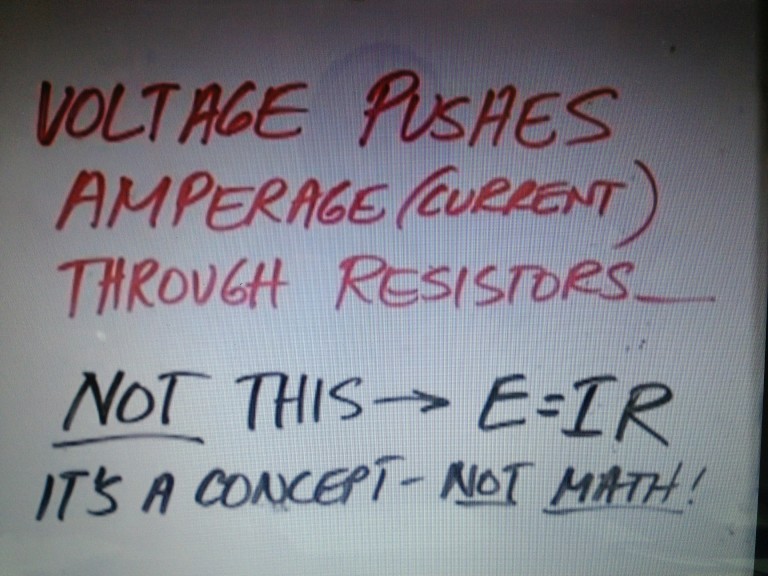 VOLTAGE PUSHES
AMPERAGE (CURRENT)
THROUGH RESISTORS
NOT THIS → E=IR
IT'S A CONCEPT - NOT MATH!